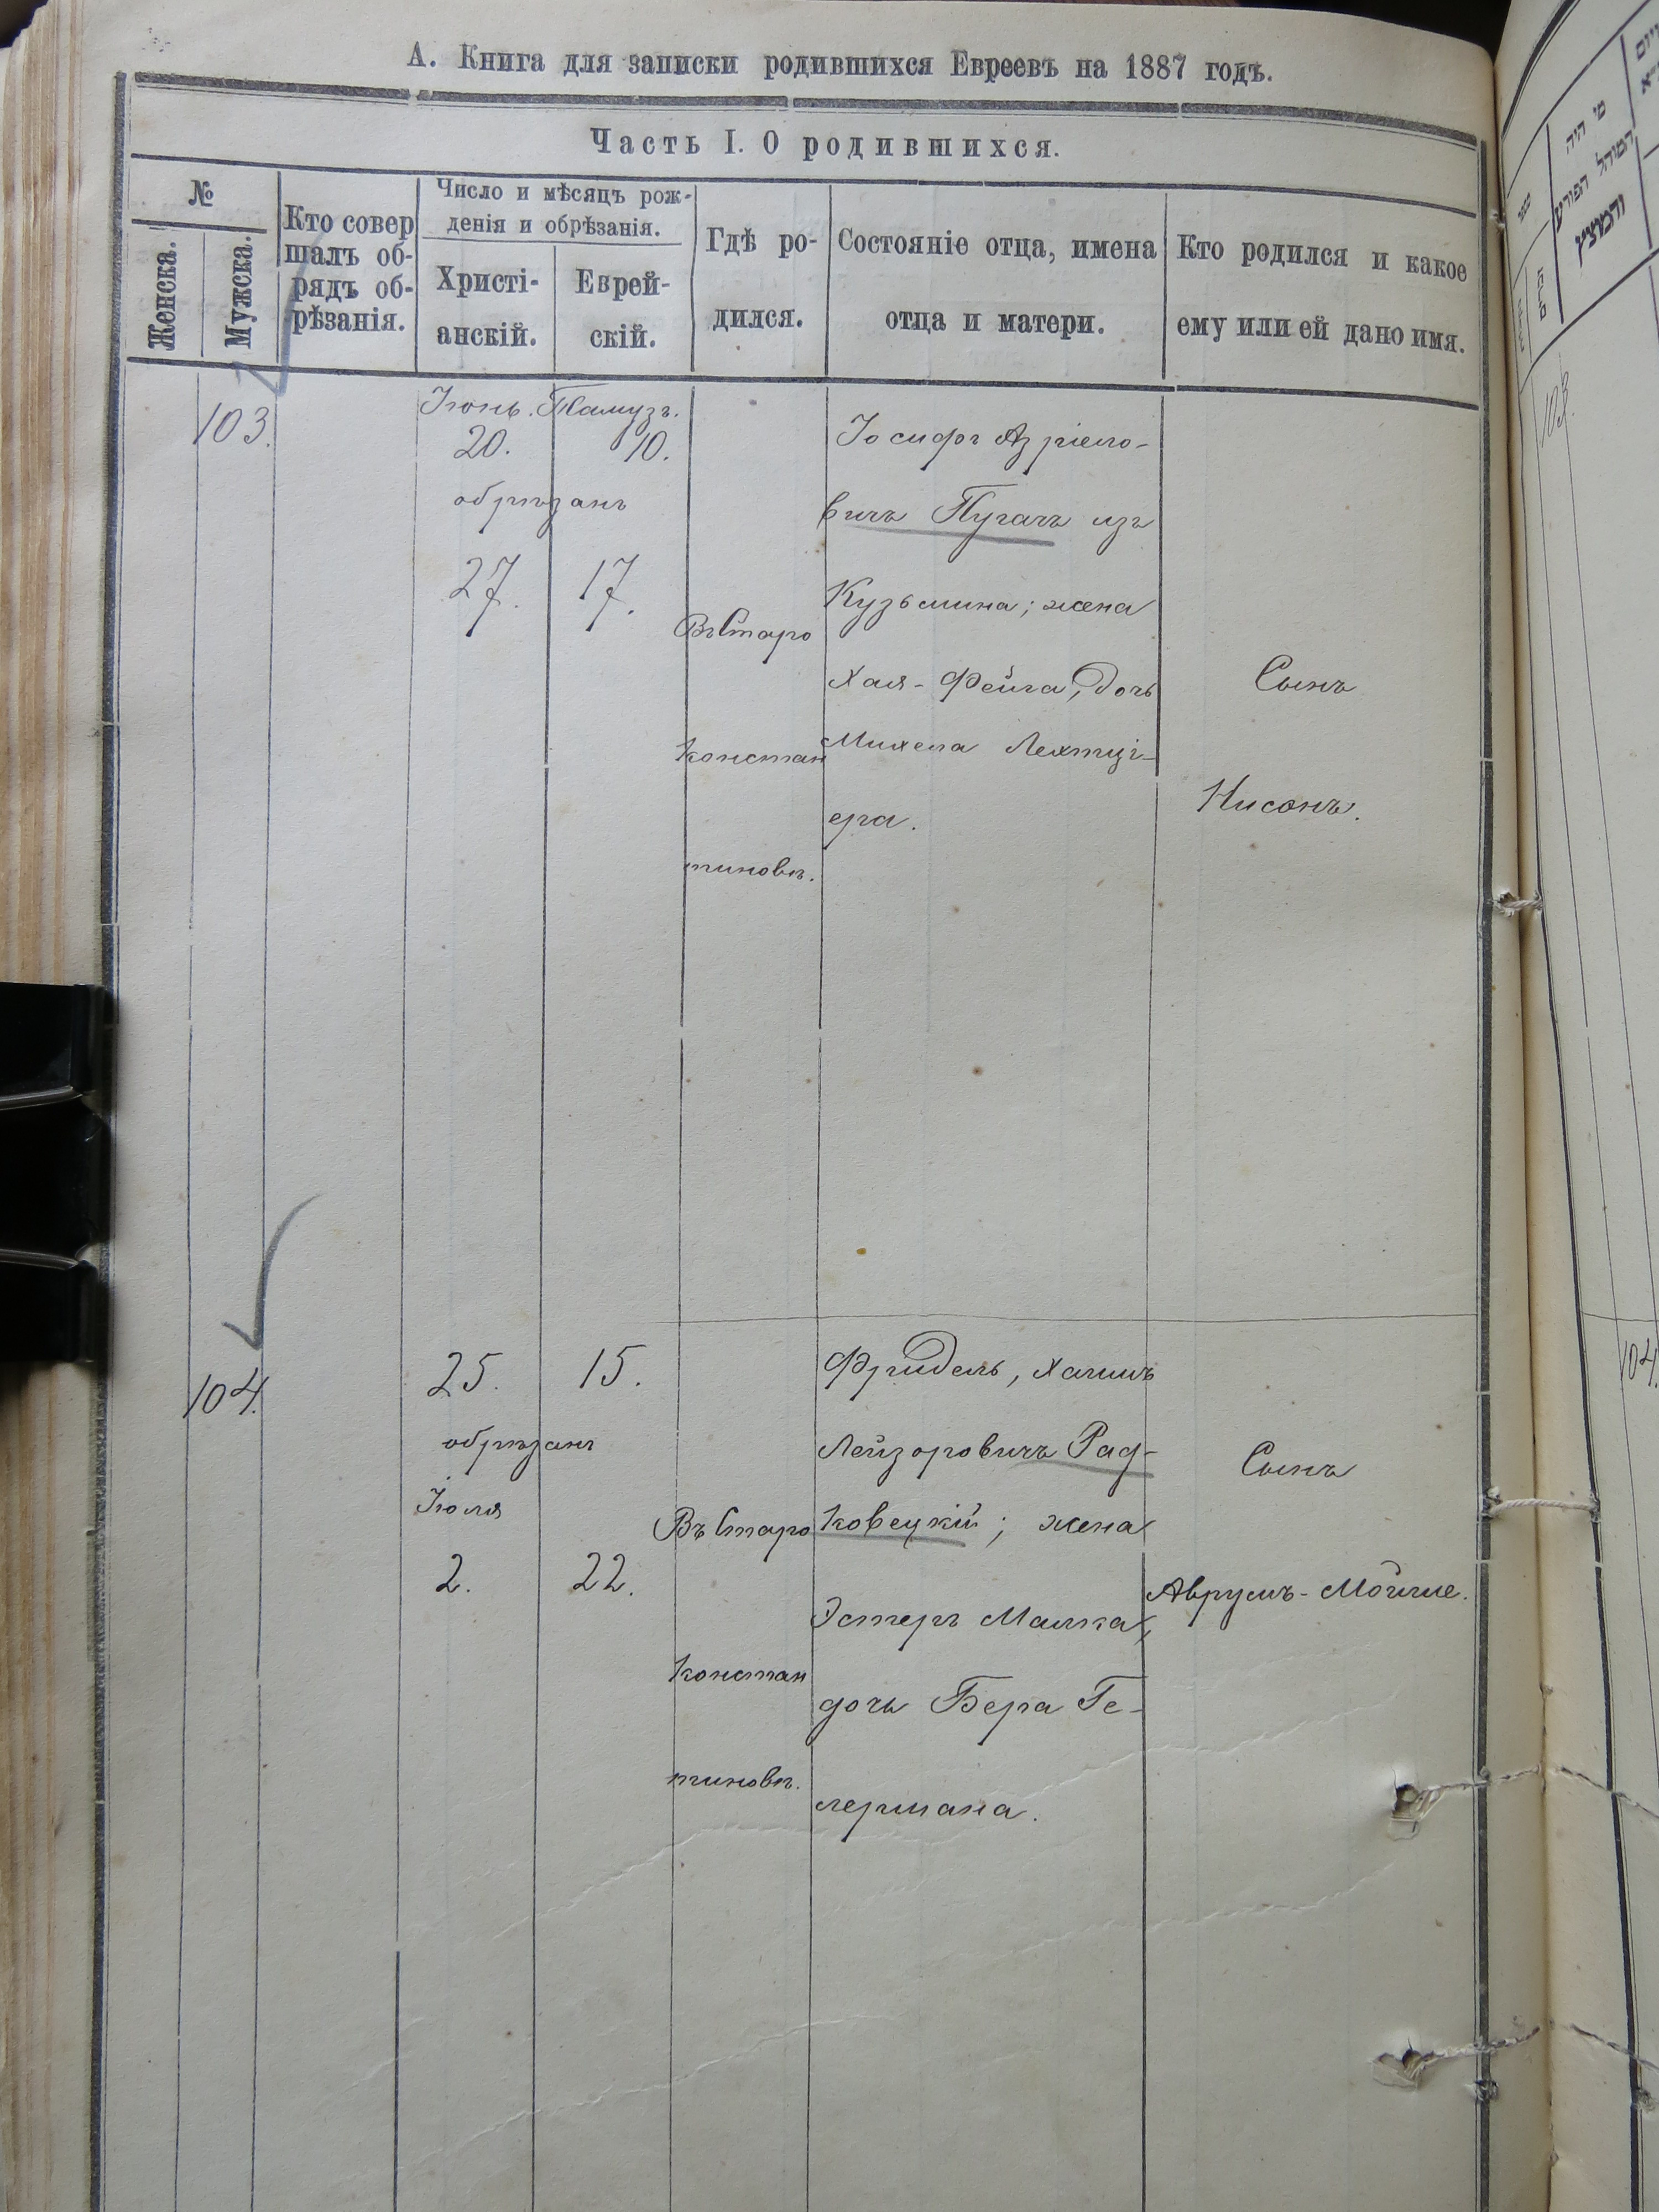 А. Книга для записки родившихся Евреевъ на 1887 годъ.
Часть I. О родившихся.
№
Женска.
Мужска.
Кто совер
шалъ об-
рядъ об-
рѣзанія.
Число и мѣсяцъ рож-
денія и обрѣзанія.
Христі-
анскій.
Еврей-
скій.
Гдѣ ро-
дился.
Состояніе отца, имена
отца и матери.
Кто родился и какое
ему или ей дано имя.
103.
Іюнь. Тамузъ.
20. 10.
обрѣзанъ
27. 17.
Въ Старо
констан
тиновѣ.
Іосифъ Азріело-
вичъ Пугачъ изъ
Кузьмина; жена
Хая-Фейга, дочь
Михела Лехтціг-
ера.
Сынъ
Нисонъ.
104.
25. 15.
обрѣзанъ
Іюля
2. 22.
Въ Старо
констан
тиновѣ.
Фридель, Хаимъ
Лейзоровичъ Рад-
ковецкій; жена
Эстеръ Малка,
дочь Бера Ге-
лермана.
Сынъ
Аврумъ-Мойше.
מי היה
המוהל הפורע
והמוצץ
103.
104.